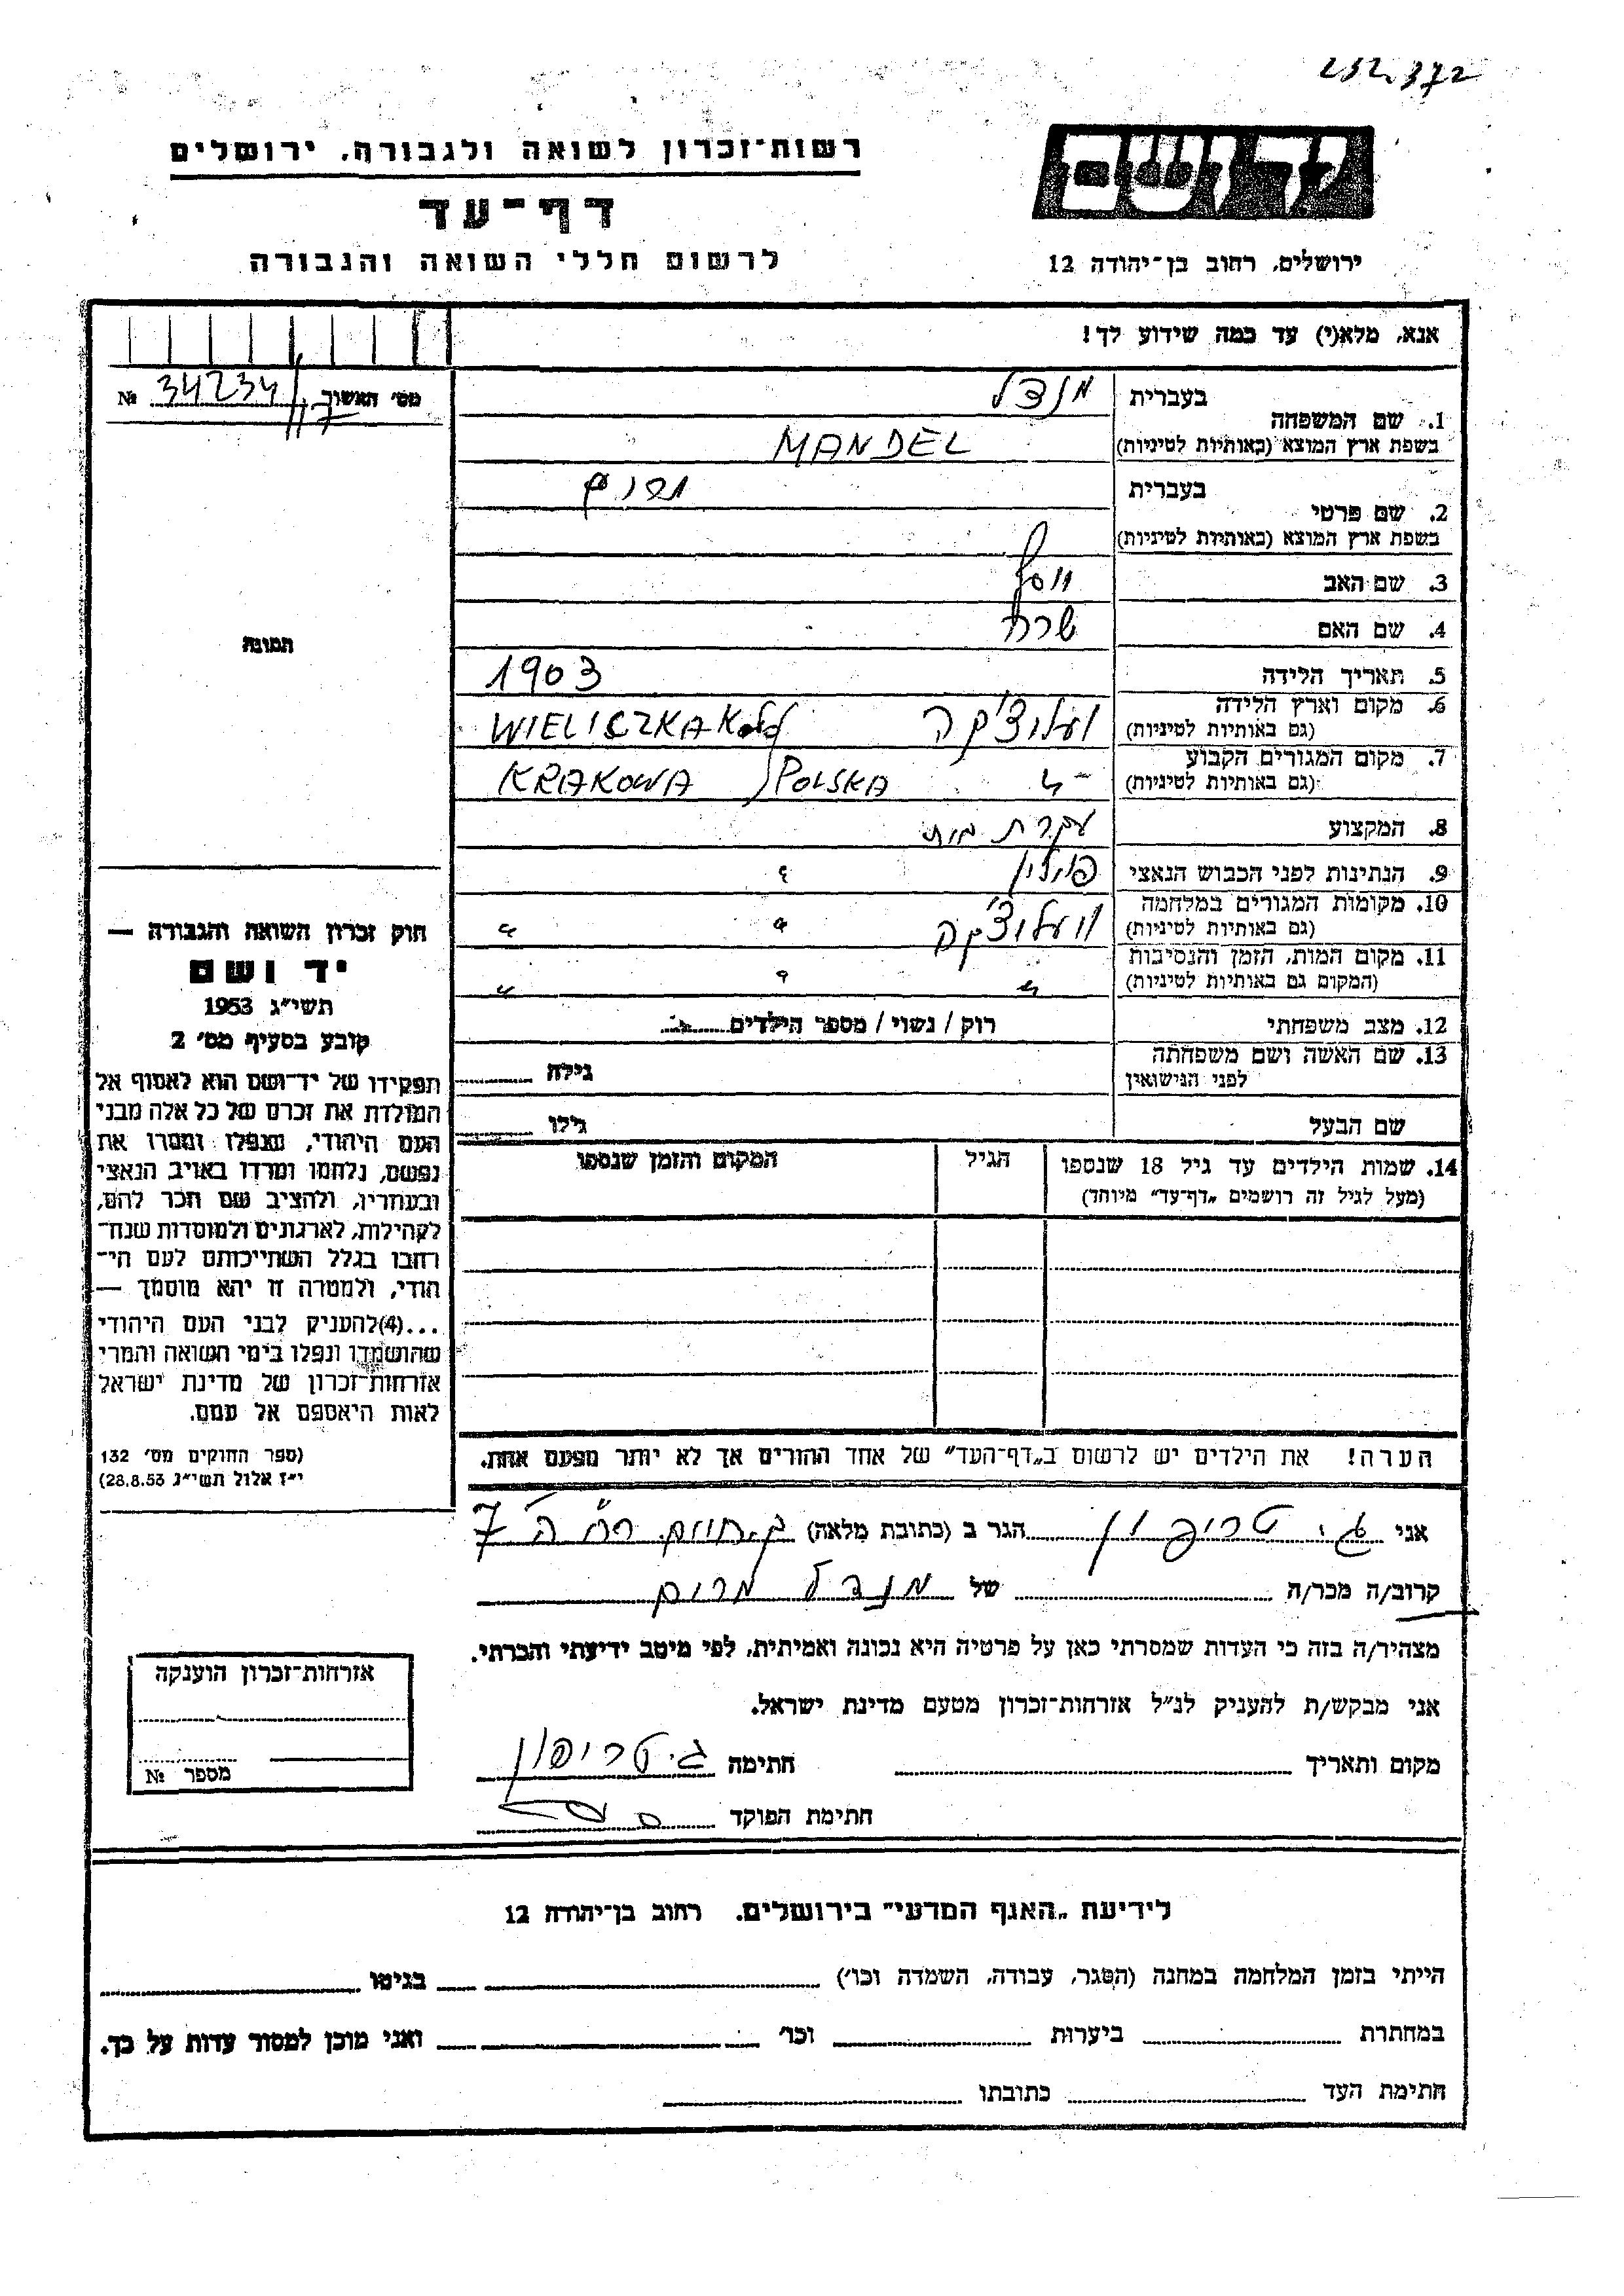 232.372
יד ושם
ירושלים, רחוב בן־יהודה 12
רשות־זכרון לשואה ולגבורה, ירושלים
דף־עד
לרשום חללי השואה והגבורה
אנא, מלא(י) עד כמה שידוע לך!
1. שם המשפחה בעברית מנדל
בשפת ארץ המוצא (באותיות לטיניות) MANDEL
2. שם פרטי בעברית
בשפת ארץ המוצא (באותיות לטיניות)
3. שם האב יוסף
4. שם האם שרה
5. תאריך הלידה 1903
6. מקום וארץ הלידה
(גם באותיות לטיניות) WIELICZKA
7. מקום המגורים הקבוע
(גם באותיות לטיניות) -"- KRAKOWA POLSKA
8. המקצוע עקרת בית
9. הנתינות לפני הכבוש הנאצי פולין
10. מקומות המגורים במלחמה
(גם באותיות לטיניות) וועלוצ'קה
11. מקום המות, הזמן והנסיבות
(המקום גם באותיות לטיניות) " "
12. מצב משפחתי רוק / נשוי / מספר הילדים
13. שם האשה ושם משפחתה
לפני הנישואין גילה
שם הבעל גילו
14. שמות הילדים עד גיל 18 שנספו הגיל המקום והזמן שנספו
(מעל לגיל זה רושמים „דף־עד" מיוחד)
הערה! את הילדים יש לרשום ב„דף־העד" של אחד ההורים אך לא יותר מפעם אחת.
מס' תאשור 34234/117 №
תמונה
חוק זכרון השואה והגבורה —
יד ושם
תשי"ג 1953
קובע בסעיף מס' 2
תפקידו של יד־ושם הוא לאסוף אל
המולדת את זכרם של כל אלה מבני
העם היהודי, שנפלו ומסרו את
נפשם, נלחמו ומרדו באויב הנאצי
ובעוזריו, ולהציב שם וזכר להם,
לקהילות, לארגונים ולמוסדות שנח־
רבו בגלל השתייכותם לעם הי־
הודי, ולמטרה זו יהא מוסמך —
...(4)להעניק לבני העם היהודי
שהושמדו ונפלו בימי השואה והמרי
אזרחות־זכרון של מדינת ישראל
לאות היאספם אל עמם.
(ספר החוקים מס' 132
י"ז אלול תשי"ג 28.8.53)
אני ג. טריפון הגר ב (כתובת מלאה) 7
קרוב/ה מכר/ה של מנדל
מצהיר/ה בזה כי העדות שמסרתי כאן על פרטיה היא נכונה ואמיתית, לפי מיטב ידיעתי והכרתי.
אני מבקש/ת להעניק לנ"ל אזרחות־זכרון מטעם מדינת ישראל.
מקום ותאריך חתימה ג. טריפון
חתימת הפוקד
אזרחות־זכרון הוענקה
מספר №
לידיעת „האגף המדעי" בירושלים, רחוב בן־יהודה 12
הייתי בזמן המלחמה במחנה (הסגר, עבודה, השמדה וכו') בגיטו
במחתרת ביערות וכו' ואני מוכן למסור עדות על כך.
חתימת העד כתובתו